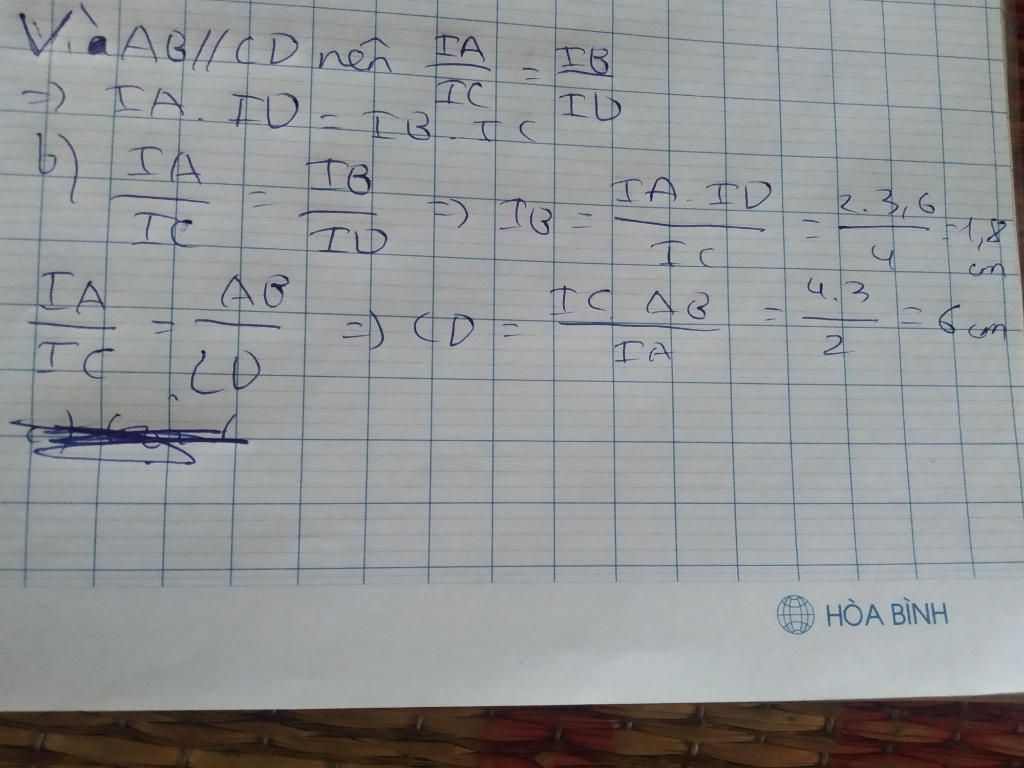 Vì AB//CD nên IA/IC = IB/ID
=> IA. ID = IB. IC
b) IA/IC = IB/ID => IB = IA. ID/IC = 2. 3,6/4 = 1,8 cm
IA/IC = AB/CD => CD = IC AB/IA = 4.3/2 = 6 cm
HÒA BÌNH